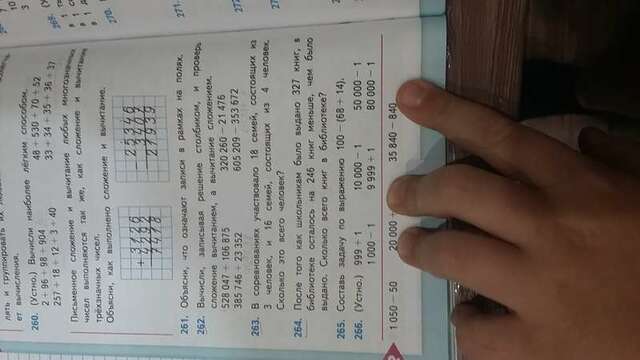 лять и группировать их
ет вычисления.
260. (Устно.) Вычисли наиболее лёгким способом.
2 + 96 + 98 + 904 48 + 530 + 70 + 52
257 + 18 + 12 + 3 + 40 33 + 34 + 35 + 36 + 37
Письменное сложение и вычитание любых многозначных
чисел выполняются так же, как сложение и вычитание
трёхзначных чисел.
Объясни, как выполнено сложение и вычитание.
261. Объясни, что означают записи в рамках на полях.
262. Вычисли, записывая решение столбиком, и проверь
сложение вычитанием, а вычитание сложением.
528 047 + 106 875 320 260 − 21 476
385 746 + 23 352 605 209 − 353 672
263. В соревнованиях участвовало 18 семей, состоящих из
3 человек, и 16 семей, состоящих из 4 человек.
Сколько это всего человек?
264. После того как школьникам было выдано 327 книг, в
библиотеке осталось на 246 книг меньше, чем было
выдано. Сколько всего книг в библиотеке?
265. Составь задачу по выражению 100 − (68 + 14).
266. (Устно.) 999 + 1 10 000 − 1 50 000 − 1
1 000 − 1 9 999 + 1 80 000 − 1
1 050 − 50 20 000 + 35 840 − 840